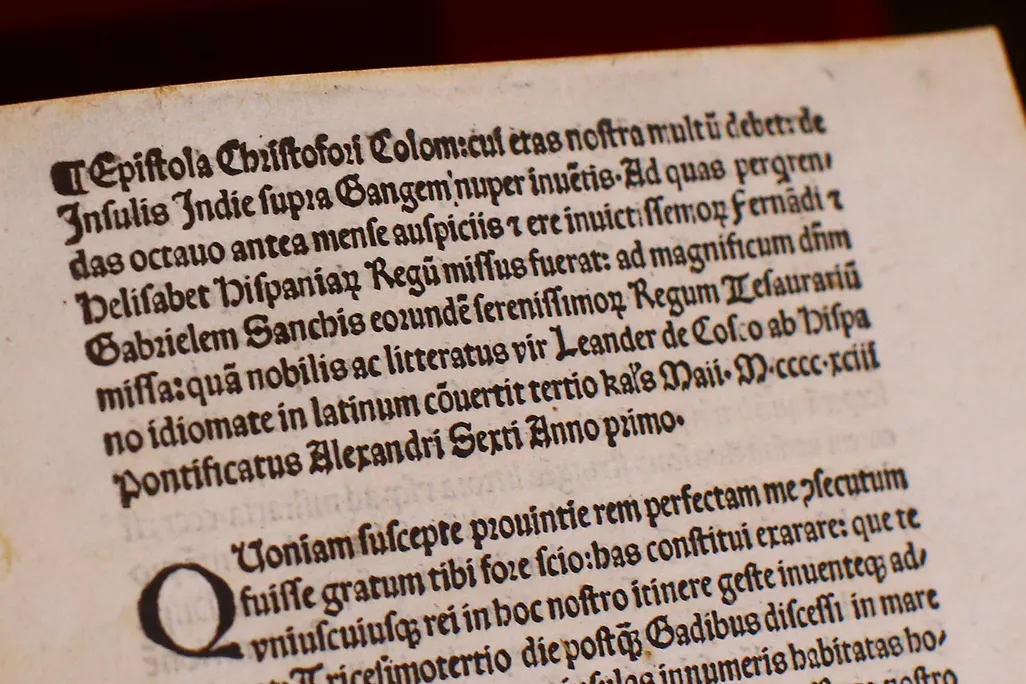 ¶ Epiſtola Chriſtofori Colom: cui etas noſtra multū debet: de
Inſulis Indie ſupra Gangem nuper inuētis. Ad quas perqren⸗
das octauo antea menſe auſpiciis ⁊ ere inuictiſſemoꝝ Fernādi ⁊
Heliſabet Hiſpaniaꝝ Regū miſſus fuerat: ad magnificum dn̄m
Gabrielem Sanchis eorundē ſereniſſimoꝝ Regum Teſaurariū
miſſa: quā nobilis ac litteratus vir Leander de Coſco ab Hiſpa
no idiomate in latinum cōuertit tertio kal's Maii. M.cccc.xciii
Pontificatus Alexandri Sexti Anno primo.
QUoniam ſuſcepte prouintie rem perfectam me ꝯſecutum
fuiſſe gratum tibi fore ſcio: has conſtitui exarare: que te
vniuſcuiuſqꝫ rei in hoc noſtro itinere geſte inuenteqꝫ ad⸗
Triceſimotertio die poſtqꝫ̄ Gadibus diſceſſi in mare
innumeris habitatas ho⸗
noſtro